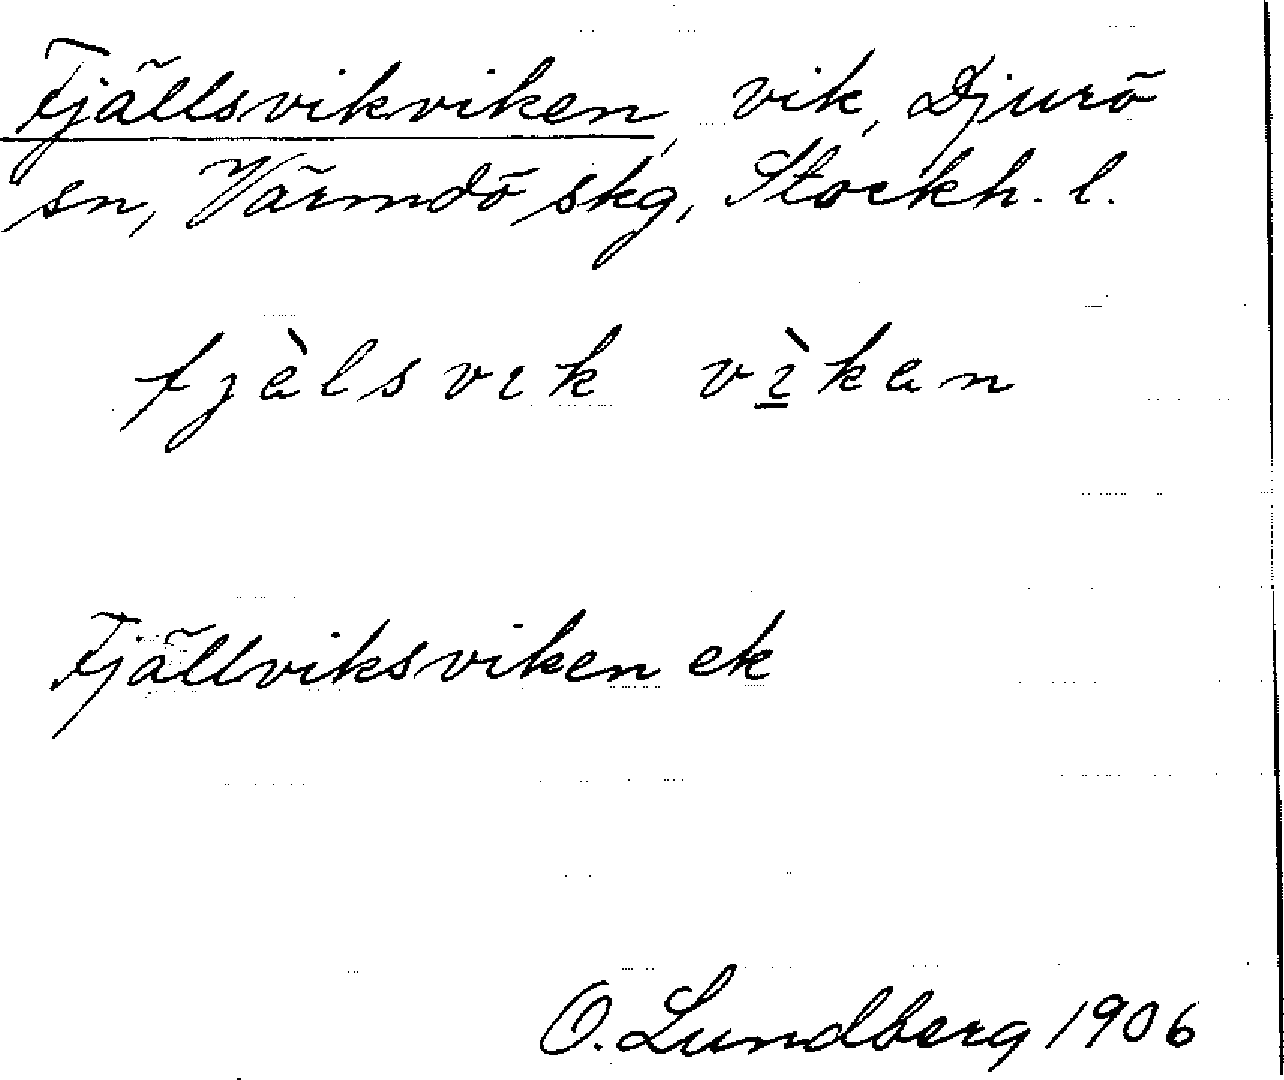 Fjällsvikviken, vik, Djurö
sn, Värmdö skg, Stockh. l.
fjèlsvɩk vɩ̲̀ken
Fjällviksviken ek
O. Lundberg 1906